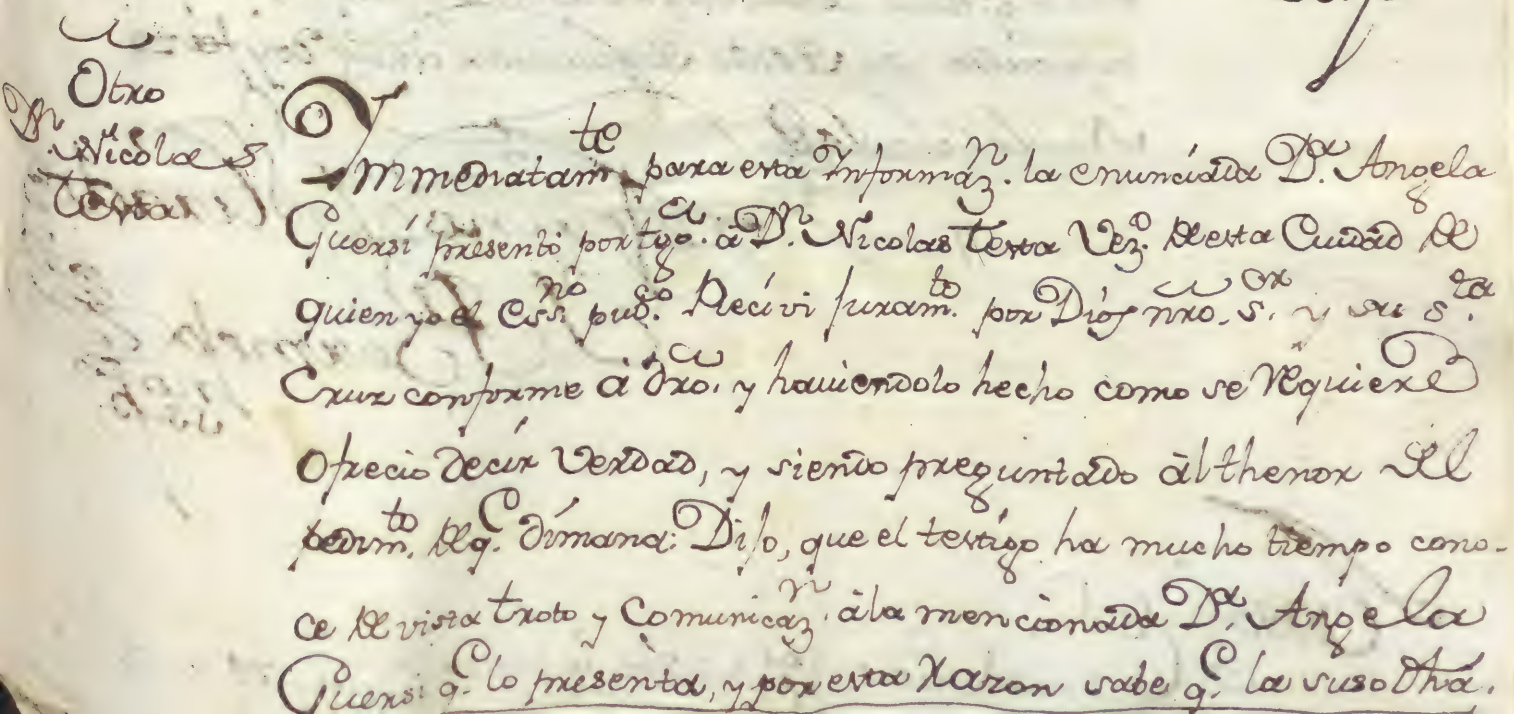 Otro
Dn. Nicolas
Testa
Ymmediatamte. para esta Informazn. la enunciada Da. Angela
Guersi presentò por tgo. à Dn. Nicolas Testa Vezo. de esta Cuidad de
quien yo el Essno. puco. Recivi juramto. por Dios nro. Sor. y su sta.
Cruz conforme à dro. y haviendolo hecho como se requiere
Ofrecio decir Verdad, y siendo preguntado àl thenor del
pedimto. de q. dimana: Dijo, que el testigo ha mucho tiempo cono-
ce de vista trato y Comunicazn. àla mencionada Da. Angela
Guersi q. lo presenta, y por esta razon sabe q. la suso dha.